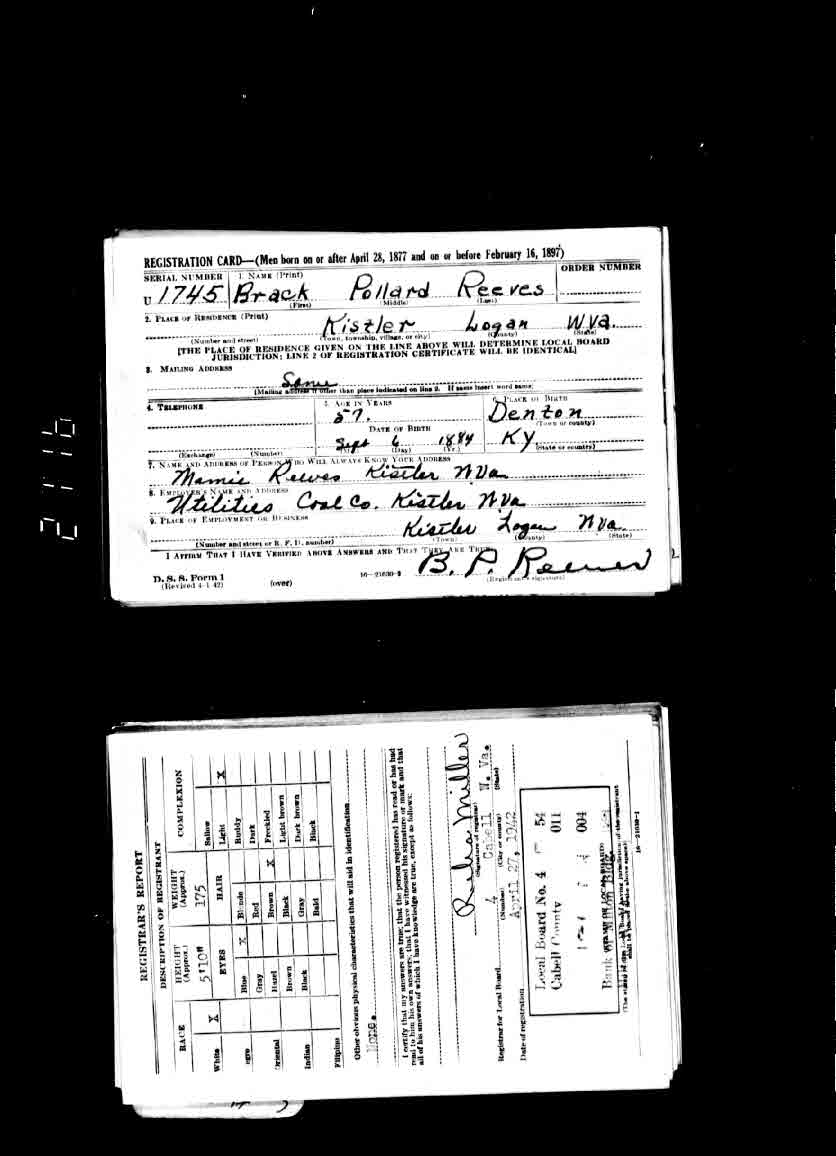 REGISTRATION CARD—(Men born on or after April 28, 1877 and on or before February 16, 1897)
SERIAL NUMBER 1. NAME (Print) ORDER NUMBER
U 1745 Brack Pollard Reeves
(First) (Middle) (Last)
2. PLACE OF RESIDENCE (Print)
Kistler Logan W Va.
(Number and street) (Town, township, village, or city) (County) (State)
[THE PLACE OF RESIDENCE GIVEN ON THE LINE ABOVE WILL DETERMINE LOCAL BOARD
JURISDICTION; LINE 2 OF REGISTRATION CERTIFICATE WILL BE IDENTICAL]
3. MAILING ADDRESS
Same
[Mailing address if other than place indicated on line 2. If same insert word same]
4. TELEPHONE 5. AGE IN YEARS 6. PLACE OF BIRTH
57. Denton
(Town or county)
DATE OF BIRTH
Sept 6 1884 KY
(Exchange) (Number) (Mo.) (Day) (Yr.) (State or country)
7. NAME AND ADDRESS OF PERSON WHO WILL ALWAYS KNOW YOUR ADDRESS
Mamie Reeves Kistler W Va
8. EMPLOYER'S NAME AND ADDRESS
Utilities Coal Co. Kistler W Va
9. PLACE OF EMPLOYMENT OR BUSINESS
Kistler Logan W Va
(Number and street or R. F. D. number) (Town) (County) (State)
I AFFIRM THAT I HAVE VERIFIED ABOVE ANSWERS AND THAT THEY ARE TRUE.
B. P. Reeves
D. S. S. Form 1
(Revised 4-1-42) (over) 16—21630-2 (Registrant's signature)
2116
REGISTRAR'S REPORT
DESCRIPTION OF REGISTRANT
RACE HEIGHT (Approx.) WEIGHT (Approx.) COMPLEXION
5'10" 175
White X EYES HAIR Sallow
Light X
Blue X Blonde Ruddy
egro Gray Red Dark
Oriental Hazel Brown X Freckled
Brown Black Light brown
Indian Black Gray Dark brown
Bald Black
Filipino
Other obvious physical characteristics that will aid in identification
None.
I certify that my answers are true; that the person registered has read or has had
read to him his own answers; that I have witnessed his signature or mark and that
all of his answers of which I have knowledge are true, except as follows:
Miller
(Signature of registrar)
Registrar for Local Board 4 Cabell W. Va.
(Number) (City or county) (State)
Date of registration April 27, 1942
Local Board No. 4 54
Cabell County 011
004
Bank of Milton Bldg.
(STAMP OF LOCAL BOARD)
16—21630-1